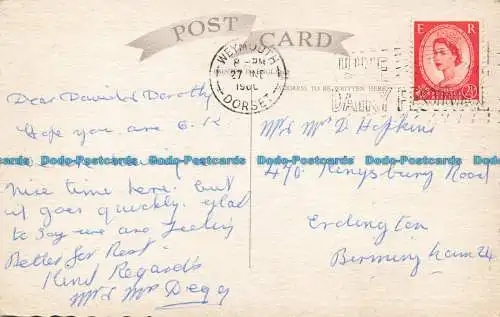 POST CARD
E R
WEYMOUTH
8 - PM
27 JNE
DORSET
DAIRY FESTIVAL
ADDRESS TO BE WRITTEN HERE
Dear David & Dorothy
Hope you are O.K
nice time here. but
it goes quickly. glad
to say we are feeling
Better for Rest.
Kind Regards
Mr & Mrs Degg
Mr & Mrs D Hopkins
470. Kingsbury Road
Erdington
Birmingham 24
Dodo-Postcards.com Dodo-Postcards.com Dodo-Postcards.com Dodo-Postcards.com